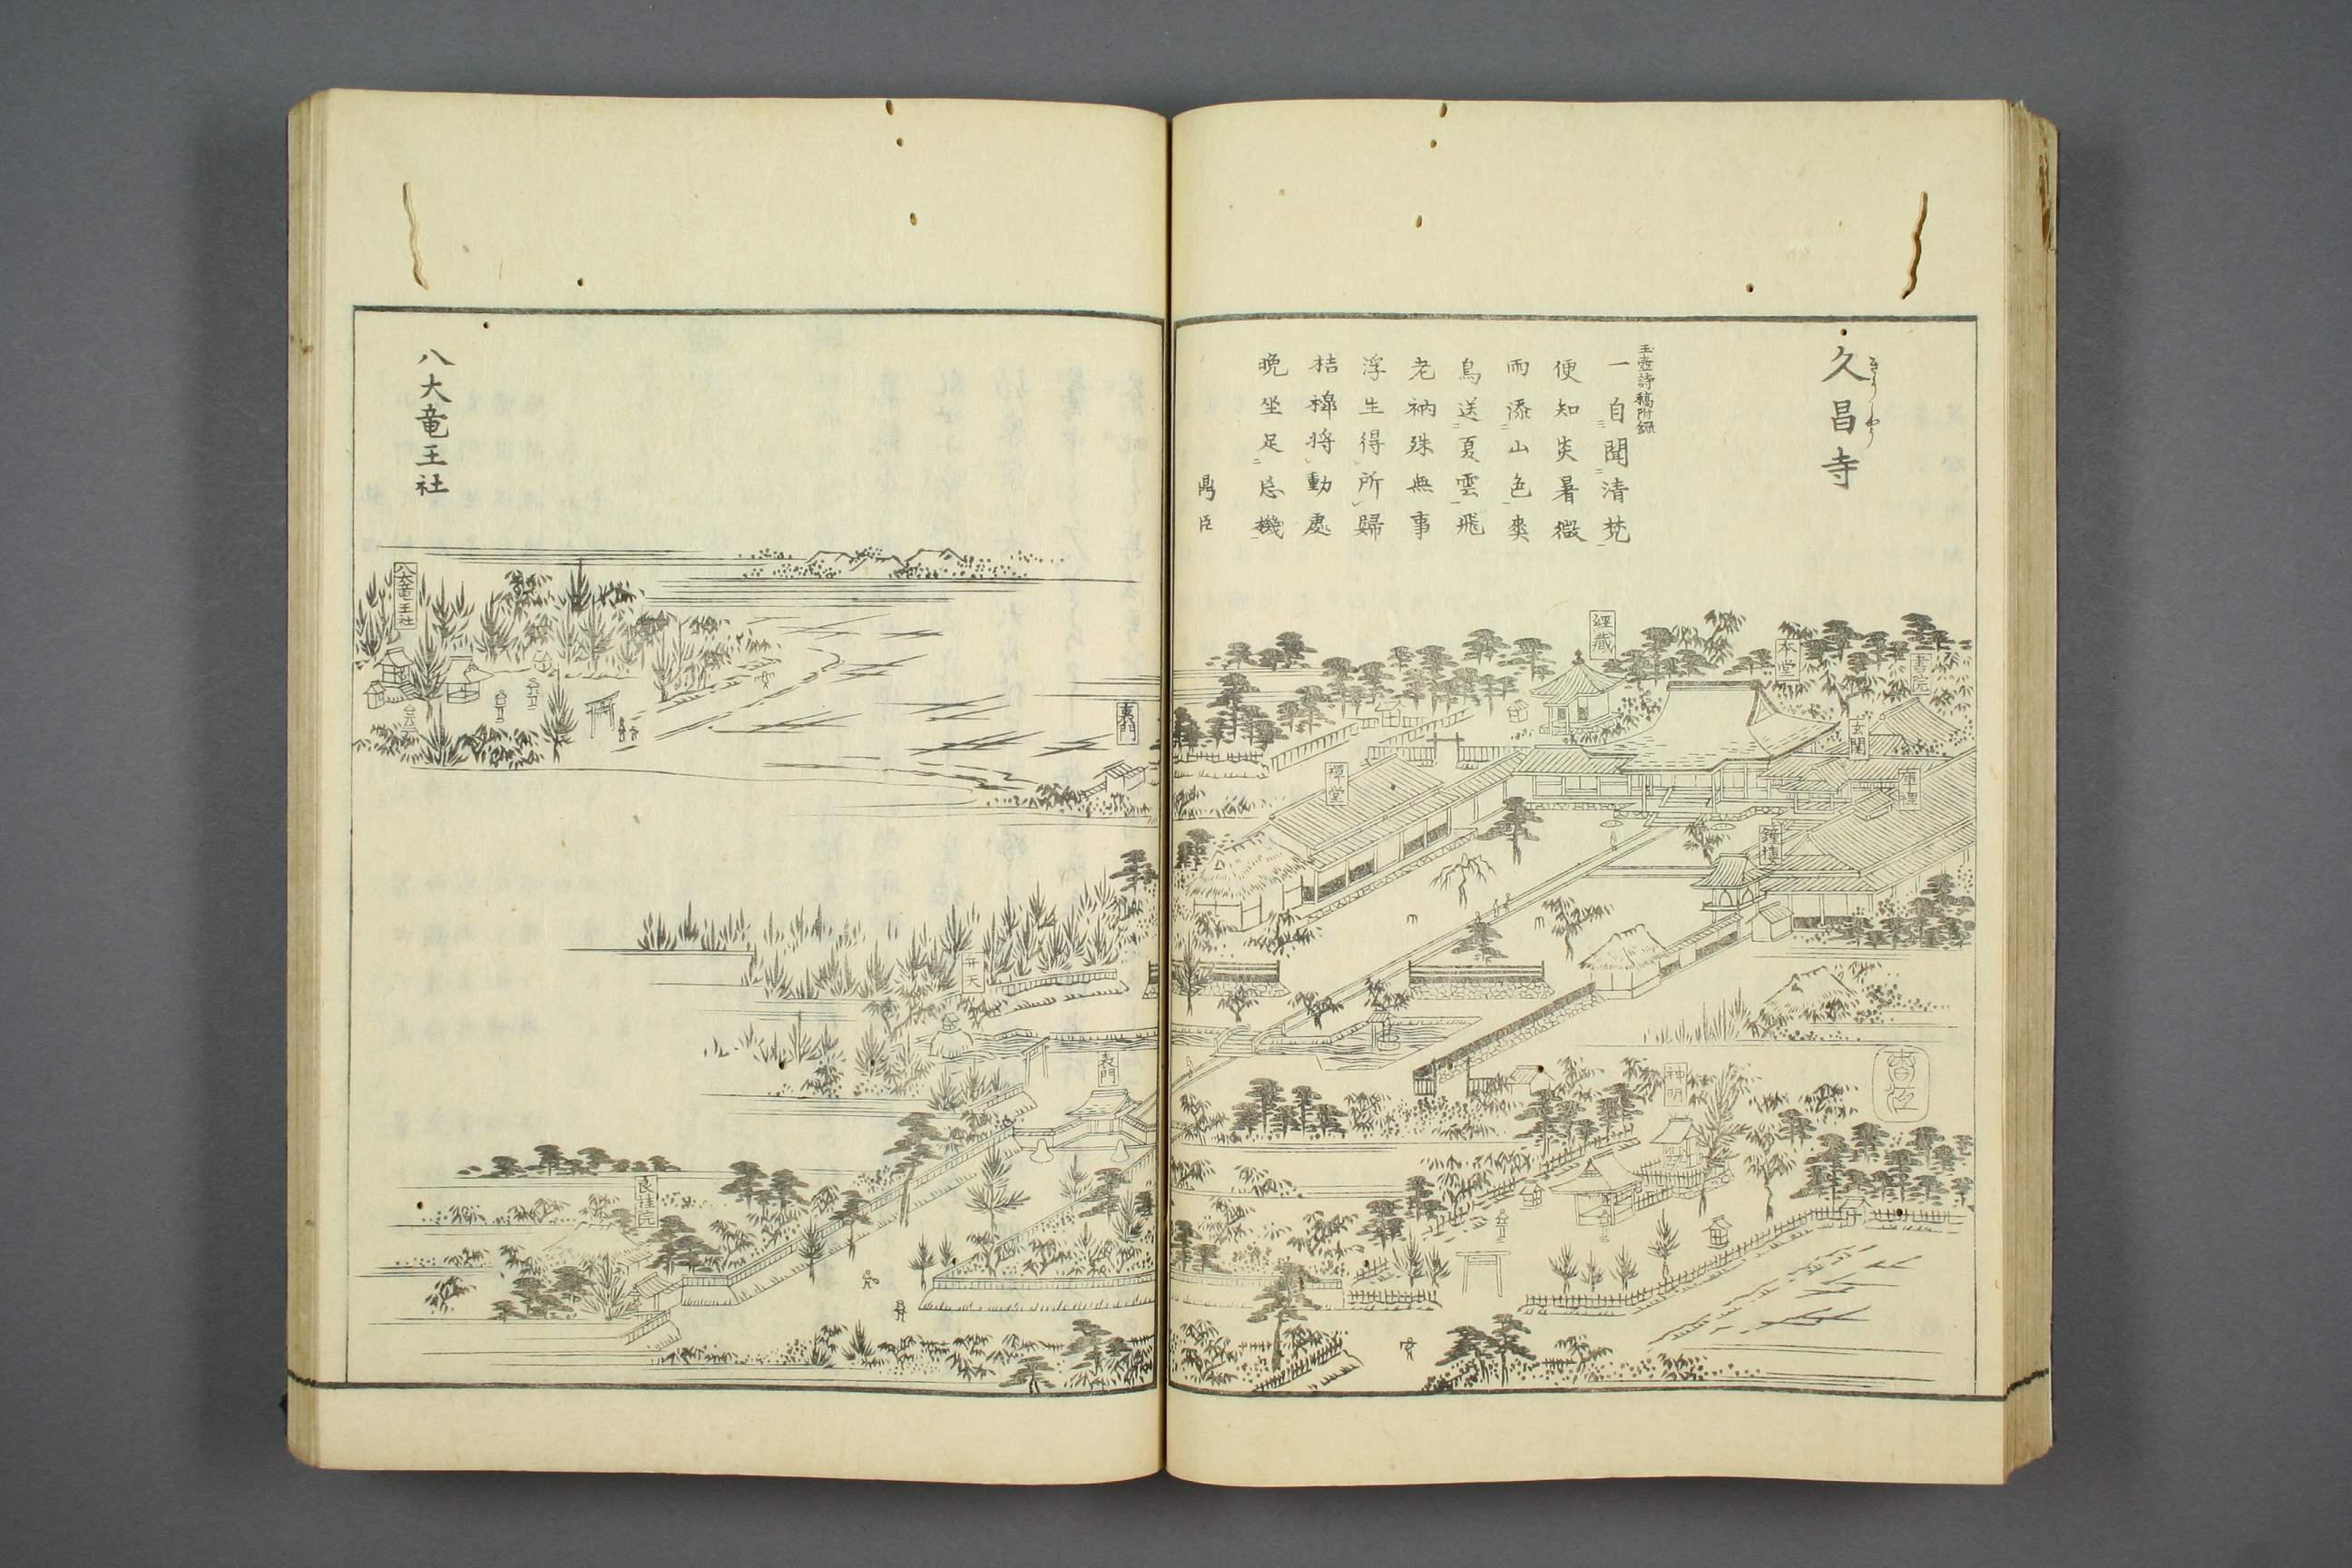 久昌寺
玉壺詩稿附録
一自聞清梵
便知炎暑微
雨添山色爽
鳥送夏雲飛
老衲殊無事
浮生得所歸
桔槹將動處
晩坐足忘機
鼎臣
書院
本堂
經藏
玄関
庫裡
禪堂
鐘楼
神明
八大竜王社
八大竜王社
裏門
弁天
表門
良桂院